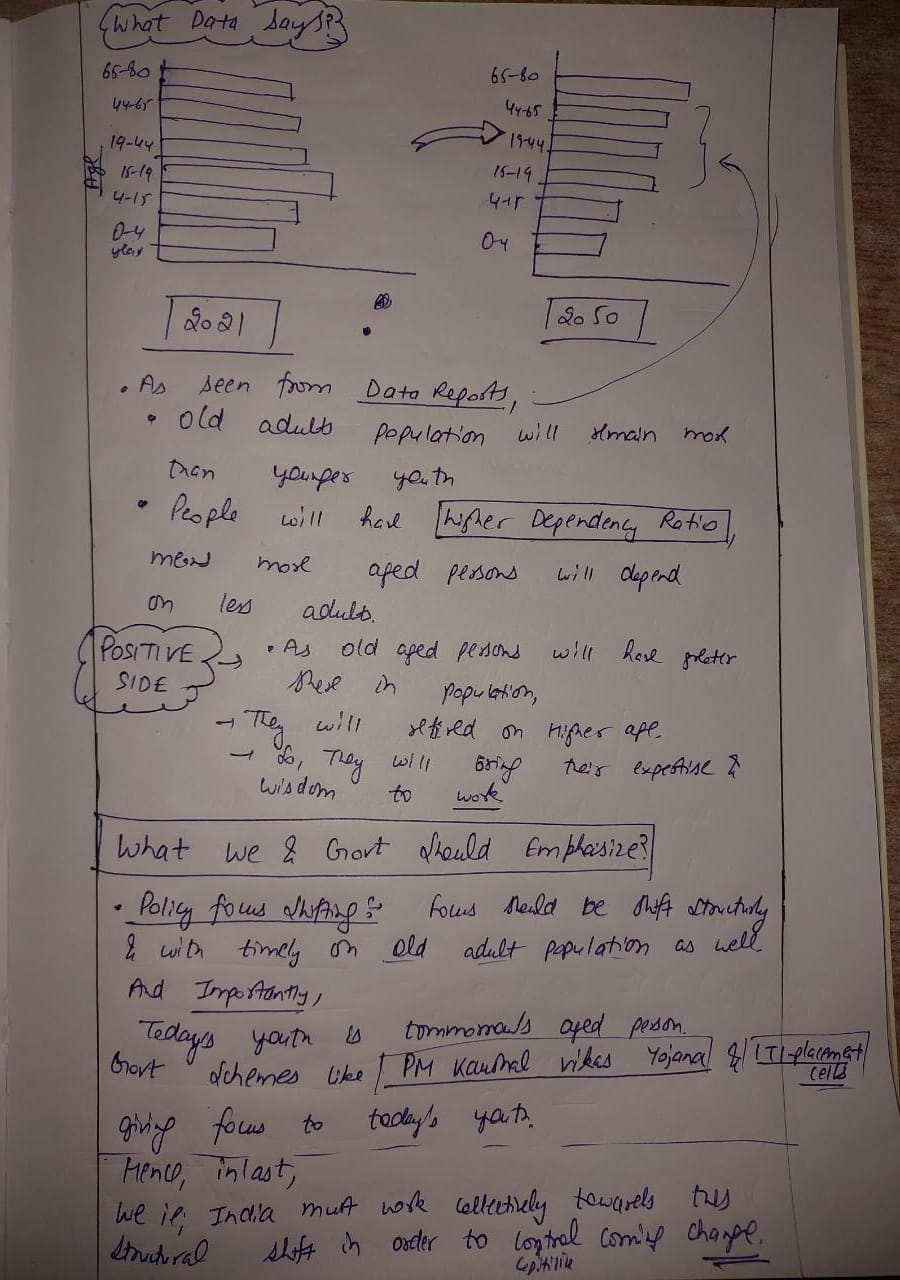 What Data Says?
65-80
44-65
19-44
15-19
4-15
0-4
year
Age
65-80
44-65
19-44
15-19
4-15
0-4
2021
2050
• As seen from Data Reports,
• Old adults population will remain more
than younger youth
• People will have higher Dependency Ratio,
means more aged persons will depend
on less adults.
POSITIVE SIDE → • As old aged persons will have greater
share in population,
→ They will retired on Higher age.
→ So, They will bring their expertise &
wisdom to work
What We & Govt Should Emphasize?
• Policy focus shifting :- focus should be shift structurly
& with timely on old adult population as well
And Importantly,
Today's youth is tommorow's aged person.
Govt Schemes like PM Kaushal vikas Yojana & ITI-placement cells
giving focus to today's youth.
Hence, in last,
We ie; India must work collectively towards this
structural shift in order to control coming change.